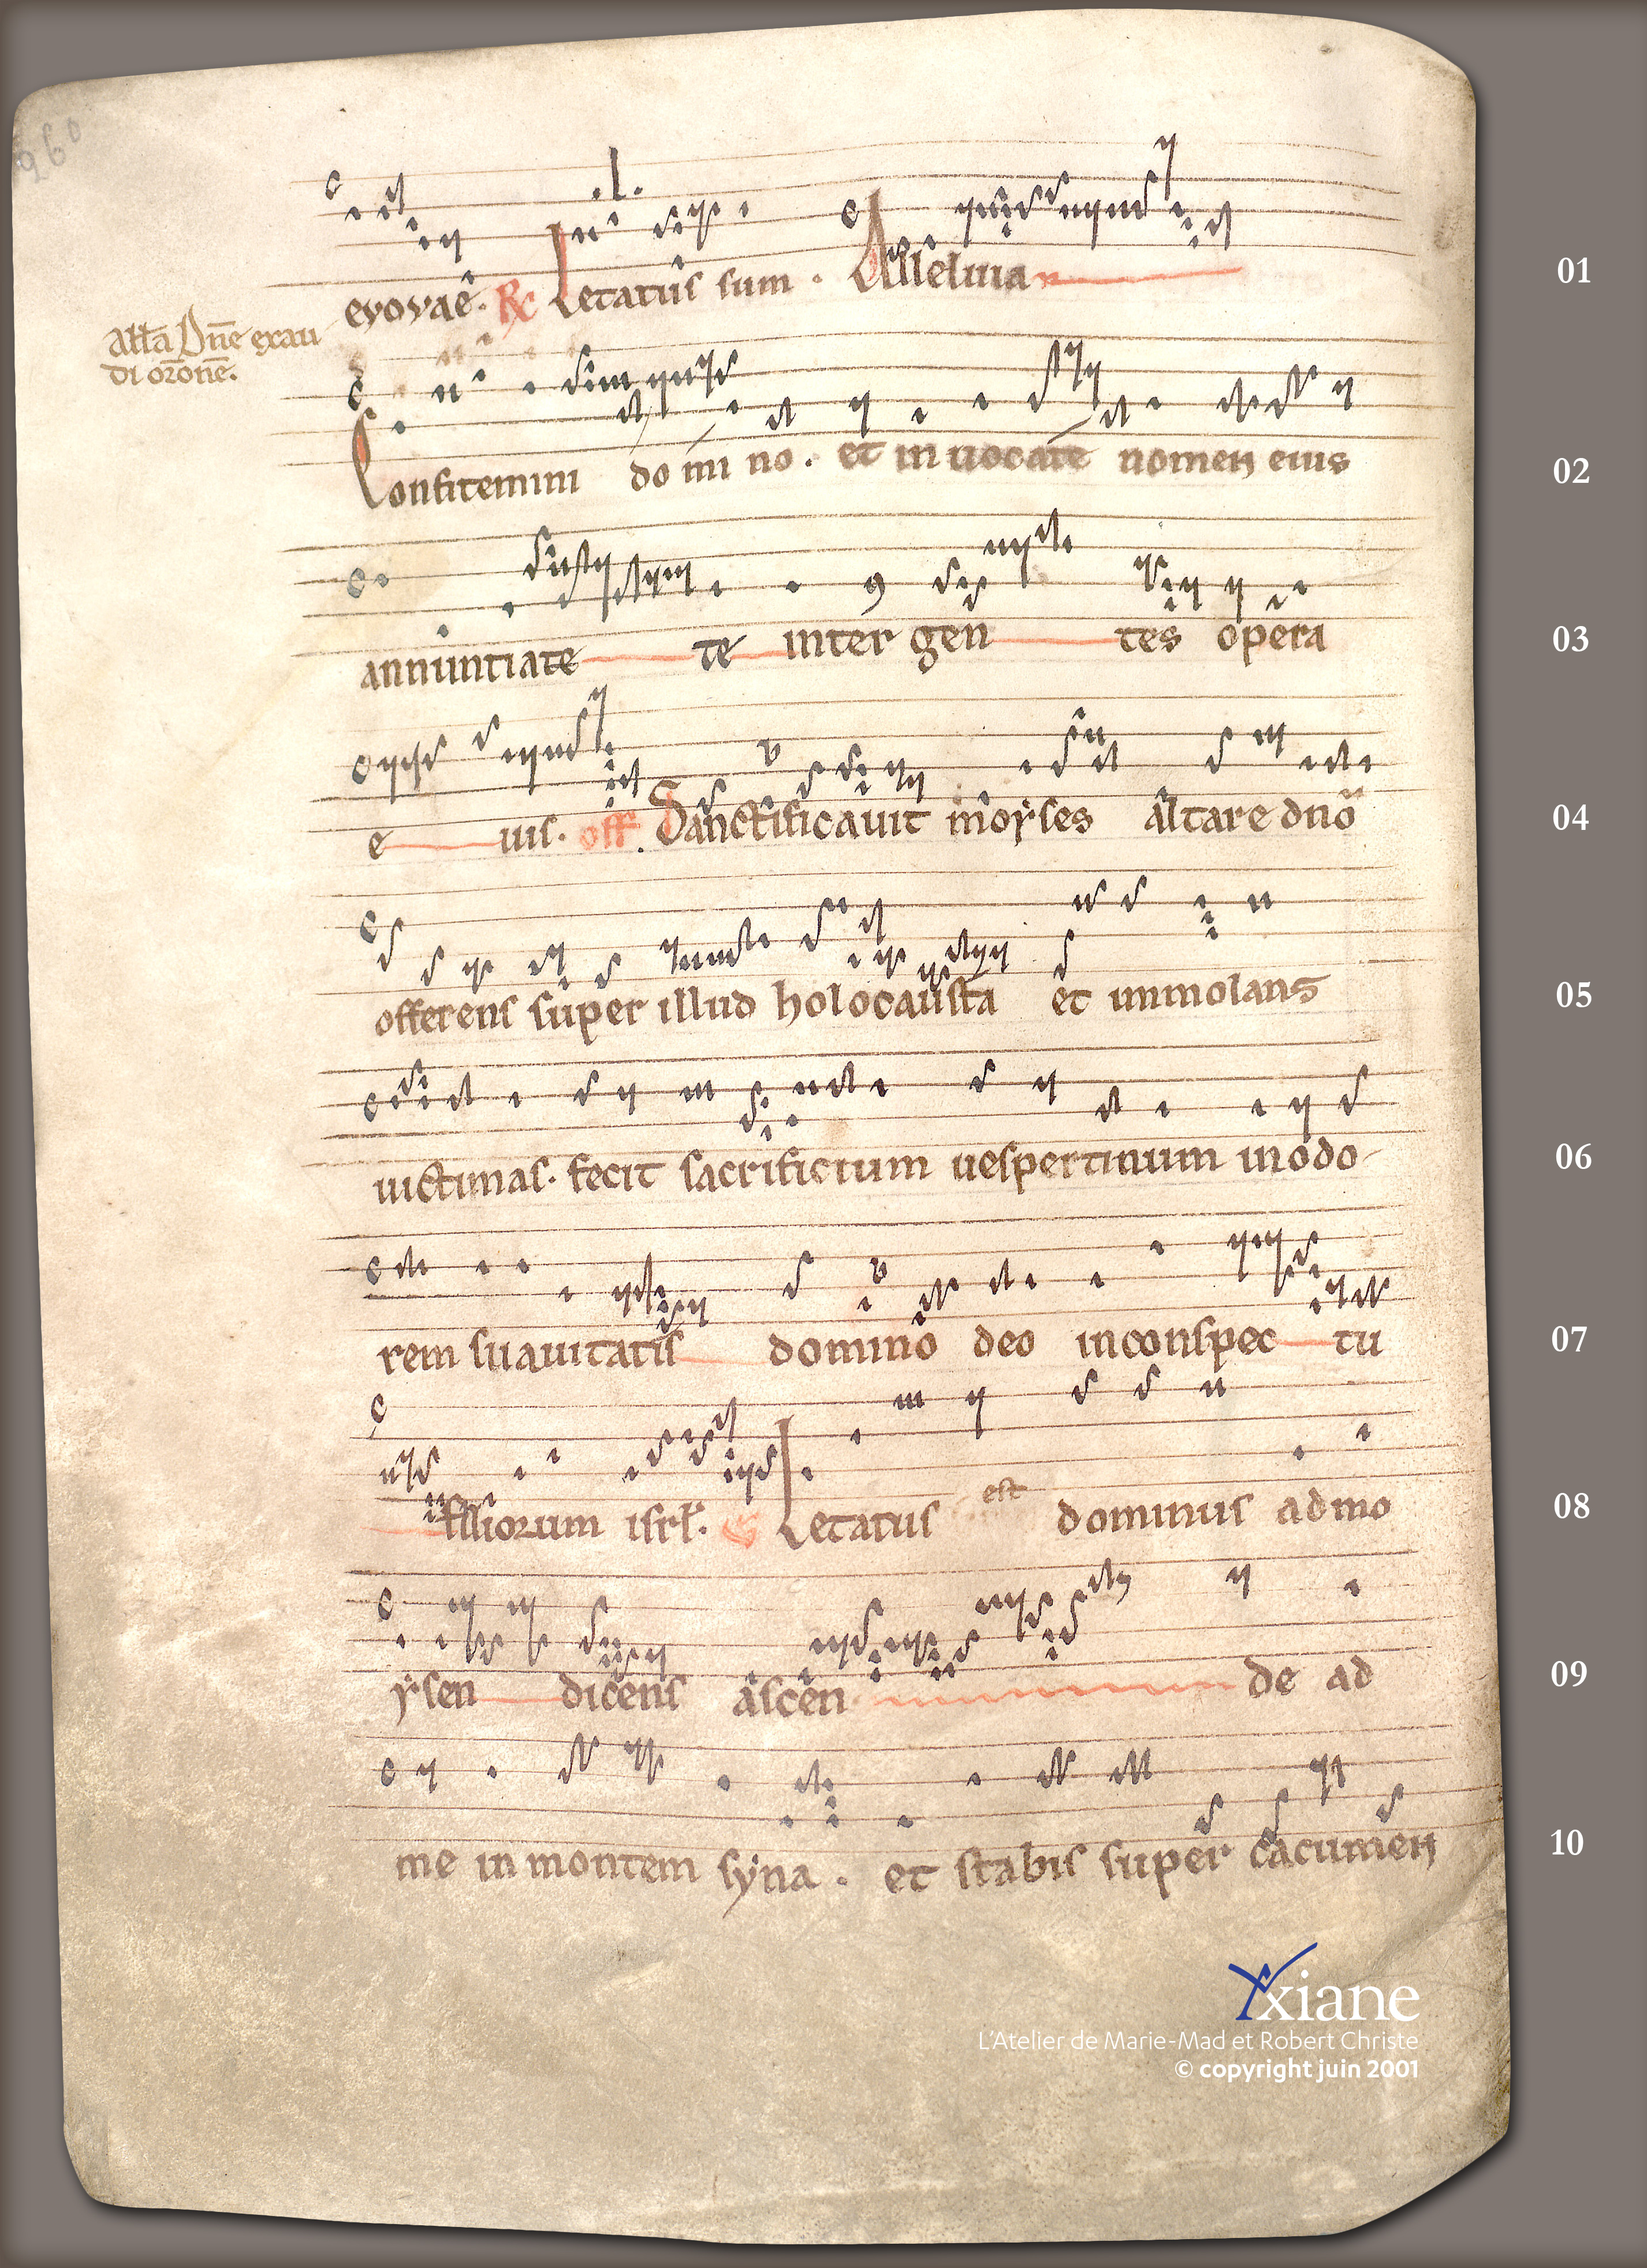 260
.l.
euouaē. R℟ Letatus sum . Alleluia
01
Allā Dn̄e exau
di or̄onē.
Confitemini do mi no . et in uocate nomen eius
02
annuntiate te inter gen tes opera
03
e ius. off. Sanctificauit moẏses altare dnō
04
offerens super illud holocausta et immolans
05
uictimas. fecit sacrificium uespertinum in odo-
06
rem suauitatis domino deo in conspec tu
07
filiorum isrl̄. Letatus est dominus ad mo
08
ẏsen dicens ascen de ad
09
me in montem sẏna . et stabis super cacumen
10
Yxiane
L'Atelier de Marie-Mad et Robert Christe
© copyright juin 2001